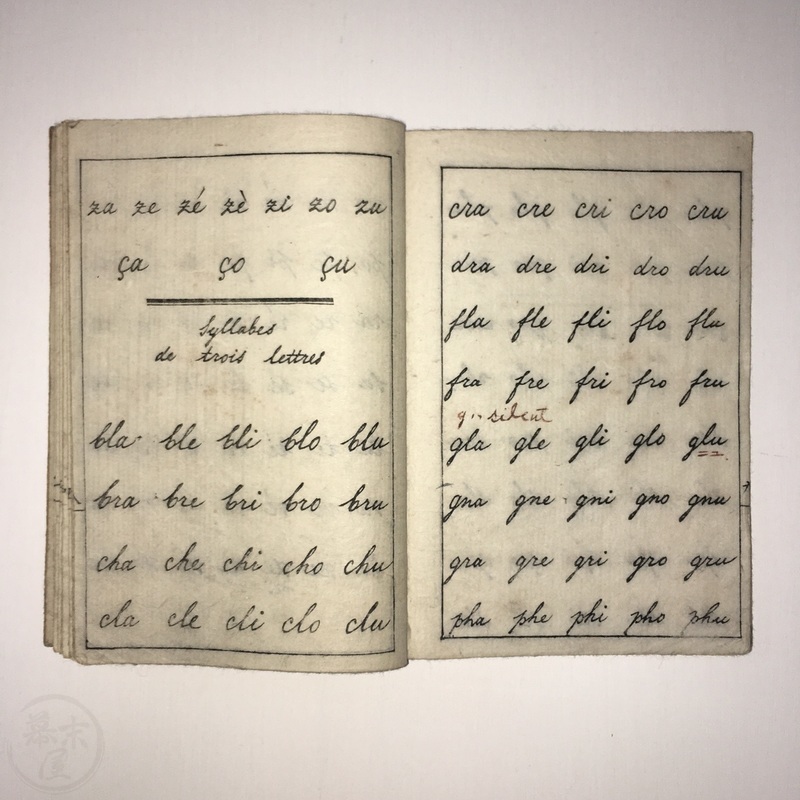 za ze zé zè zi zo zu
ça ço çu
Syllabes
de trois lettres
bla ble bli blo blu
bra bre bri bro bru
cha che chi cho chu
cla cle cli clo clu
cra cre cri cro cru
dra dre dri dro dru
fla fle fli flo flu
fra fre fri fro fru
silent
gla gle gli glo glu
gna gne gni gno gnu
gra gre gri gro gru
pha phe phi pho phu
幕末
屋